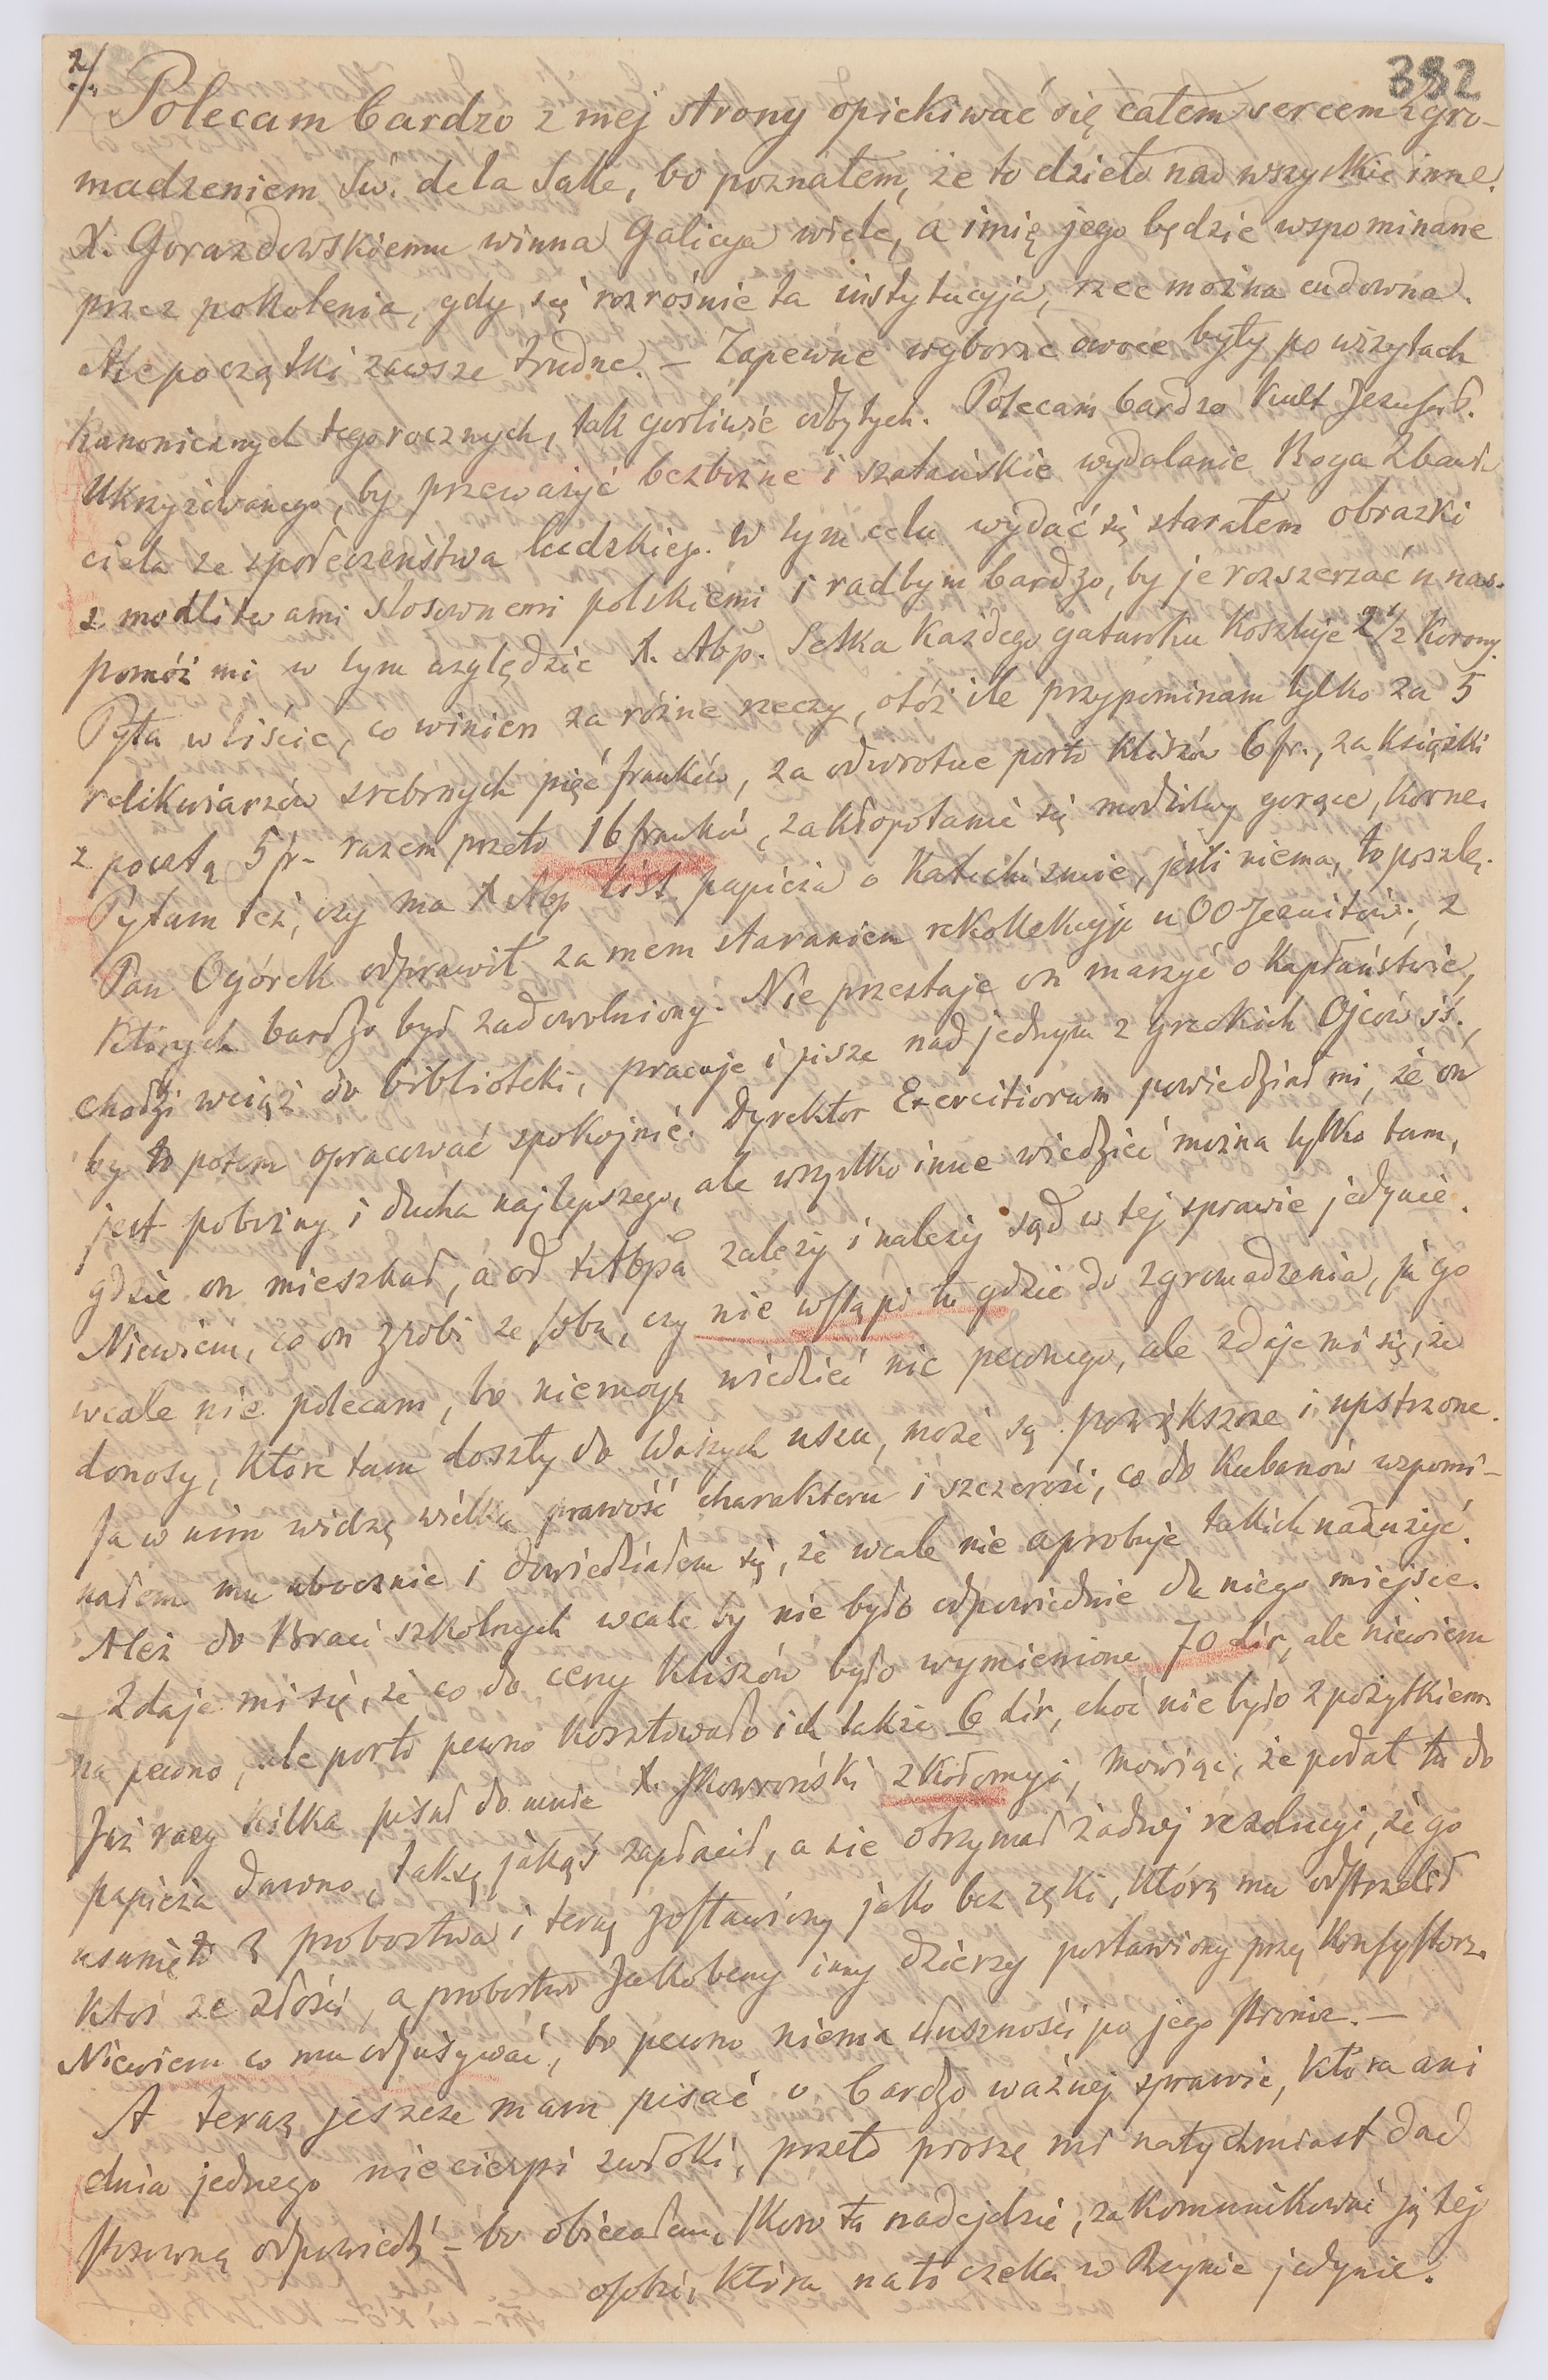 2/.
392
Polecam bardzo z mej strony opiekiwać się całem sercem zgro-
madzeniem św. de la Salle, bo poznałem, że to dzieło nad wszystkie inne.
X. Gorazdowskiemu winna Galicya wiele, a imię jego będzie wspominane
przez pokolenia, gdy się rozrośnie ta instytucyja, rzec można cudowna.
Ale początki zawsze trudne. – Zapewne wyborne owoce były po wizytach
kanonicznych tegorocznych, tak gorliwie odbytych. Polecam bardzo Kult Jezusa
Ukrzyżowanego, by przeważyć bezbożne i szatańskie wydalanie Boga Zbawi-
ciela ze społeczeństwa ludzkiego. W tym celu wydać się starałem obrazki
z modlitwami stosownemi polskiemi i radbym bardzo, by je rozszerzać u nas.
pomóż mi w tym względzie X. Abp. Setka każdego gatunku kosztuje 2 1/2 korony.
Pyta w liście, co winien za różne rzeczy, otóż ile przypominam tylko za 5
relikwiarzów srebrnych pięć franków, za odwrotne porto kliszów 6 fr., za książki
z pocztą 5 fr – razem przeto 16 franków, za kłopotanie się modlitwy gorące, korne.
Pytam też, czy ma X Abp list papieża o Katechizmie, jeśli niema, to poszlę.
Pan Ogórek odprawił za mem staraniem rekollekcyje u OO Jezuitów, z
których bardzo był zadowolniony. Nie przestaje on marzyć o kapłaństwie,
chodzi wciąż do biblioteki, pracuje i pisze nad jednym z greckich Ojców śś.,
by to potem opracować spokojnie. Dyrektor Exercitiorum powiedział mi, że on
jest pobożny i ducha najlepszego, ale wszystko inne wiedzieć można tylko tam,
gdzie on mieszkał, a od XAbpa zależy i należy sąd w tej sprawie jedynie.
Niewiem, co on zrobi ze sobą, czy nie wstąpi tu gdzie do zgromadzenia, ja go
wcale nie polecam, bo niemogę wiedzieć nic pewnego, ale zdaje mi się, że
donosy, które tam doszły do Waszych uszu, może są powiększone i upstrzone.
Ja w nim widzę wielką prawość charakteru i szczerość, co do Kubanów wspomi-
nałem mu ubocznie i dowiedziałem się, że wcale nie aprobuje takich nadużyć.
Ależ do Braci szkolnych wcale by nie było odpowiednie dla niego miejsce.
– Zdaje mi się, że co do ceny kliszów było wymienione 70 lir, ale niewiem
na pewno, ale porto pewno kosztowało ich także 6 lir, choć nie było z pożytkiem
Już razy kilka pisał do mnie X. Skowroński z Kołomyi, mówiąc, że podał tu do
papieża dawno, taksę jakąś zapłacił, a nie otrzymał żadnej rezolucyi, że go
usunięto z probostwa i teraz zostawiony jako bez ręki, którą mu odstrzelił
ktoś ze złości, a probostwo Jakobeny inny dzierży postawiony przez Konsystorz.
Niewiem co mu odpisywać, bo pewno niema słuszności po jego stronie. –
A teraz jeszcze mam pisać o bardzo ważnej sprawie, która ani
dnia jednego nie cierpi zwłoki, przeto proszę mi natychmiast dać
stosowną odpowiedź – bo obiecałem, skoro tu nadejdzie, zakomunikować ją tej
osobie, która na to czeka w Rzymie jedynie.